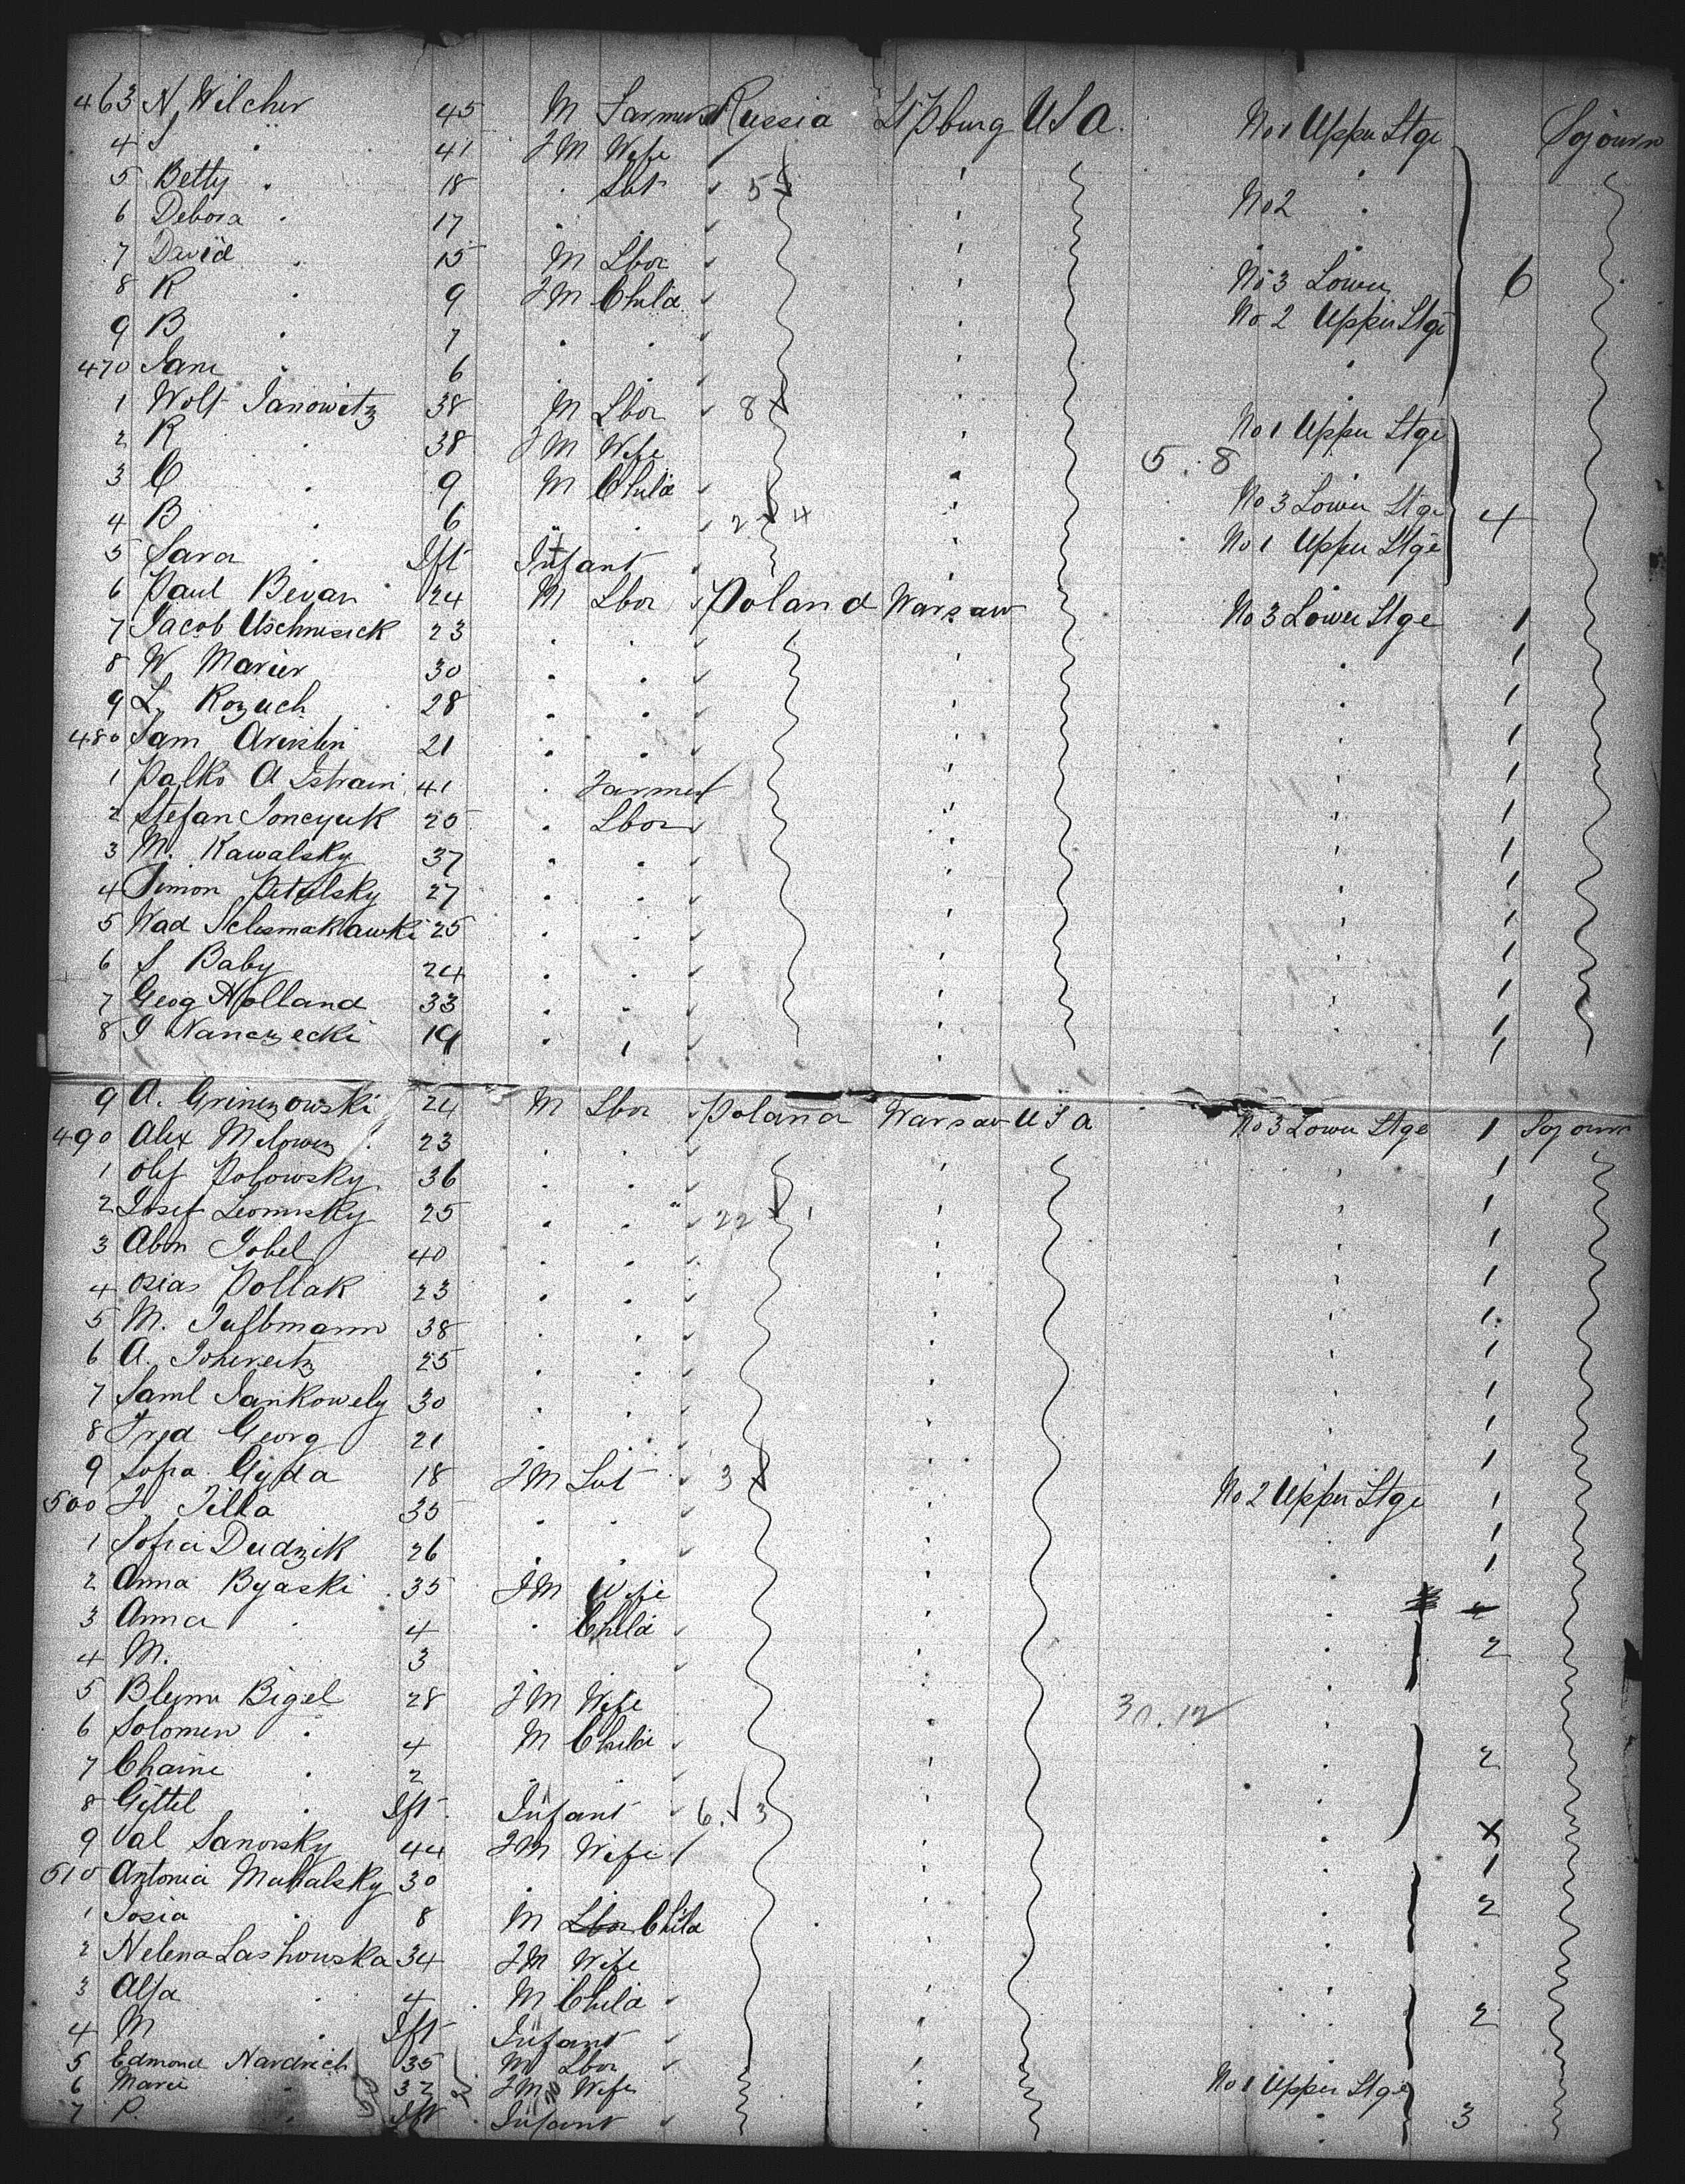 463 N Wilcher 45 M Farmer Russia St Pburg USA. No 1 Upper Stge Sojourn
4 S " 41 FM Wife
5 Betty " 18 " Sst 5 No 2 "
6 Debora " 17 " "
7 David " 15 M Lbor No 3 Lower 6
8 R " 9 FM Child No 2 Upper Stge
9 B " 7 " "
470 Jane " 6 " "
1 Wolf Janowitz 38 M Lbor 8 No 1 Upper Stge
2 R " 38 FM Wife 5. 8
3 C " 9 M Child No 3 Lower Stge 4
4 B " 6 " " 2 4 No 1 Upper Stge
5 Sara " Ift Infant
6 Paul Bevan 24 M Lbor Poland Warsaw No 3 Lower Stge 1
7 Jacob 23 " " 1
8 W Marier 30 " " 1
9 L. Kozuch 28 " " 1
480 Sam 21 " " 1
1 Palko A Istrain 41 " Farmer 1
2 Stefan Joncyuk 25 " Lbor 1
3 M. Kawalsky 37 " " 1
4 Simon Petulsky 27 " " 1
5 Wad 25 " " 1
6 S Baby 24 " " 1
7 Geog Holland 33 " " 1
8 J Nanczecki 19 " " 1
9 A. Grinezowski 24 M Lbor Poland Warsaw USA No 3 Lower Stge 1 Sojourn
490 Alex Milowez 23 " " 1
1 Olef Polowsky 36 " " 1
2 Josef 25 " " 22 1 1
3 Abm Jobel 40 " " 1
4 Osias Pollak 23 " " 1
5 M. 38 " " 1
6 A. 25 " " 1
7 Saml Jankowely 30 " " 1
8 Fred Georg 21 " " 1
9 Sofia Gyda 18 FM Sst 3 No 2 Upper Stge 1
500 J Tilla 35 " " 1
1 Sofia Dudzik 26 " " 1
2 Anna Byaski 35 FM Wife
3 Anna " 4 " Child 2
4 M. " 3 " "
5 Blume Bigel 28 FM Wife 30.12
6 Solomen " 4 M Child 2
7 Chaine " 2 " "
8 Gittel " Ift Infant 6. 3 X
9 Val Sanovsky 44 FM Wife 1
510 Antonia 30 " 2
1 Josia " 8 M Lbor Child
2 Helena Lashowska 34 FM Wife
3 Alfa " 4 M Child 2
4 M " Ift Infant
5 Edmond Nardrich 35 M Lbor No 1 Upper Stge
6 Marie " 32 FM Wife
7 P. " Ift Infant 3